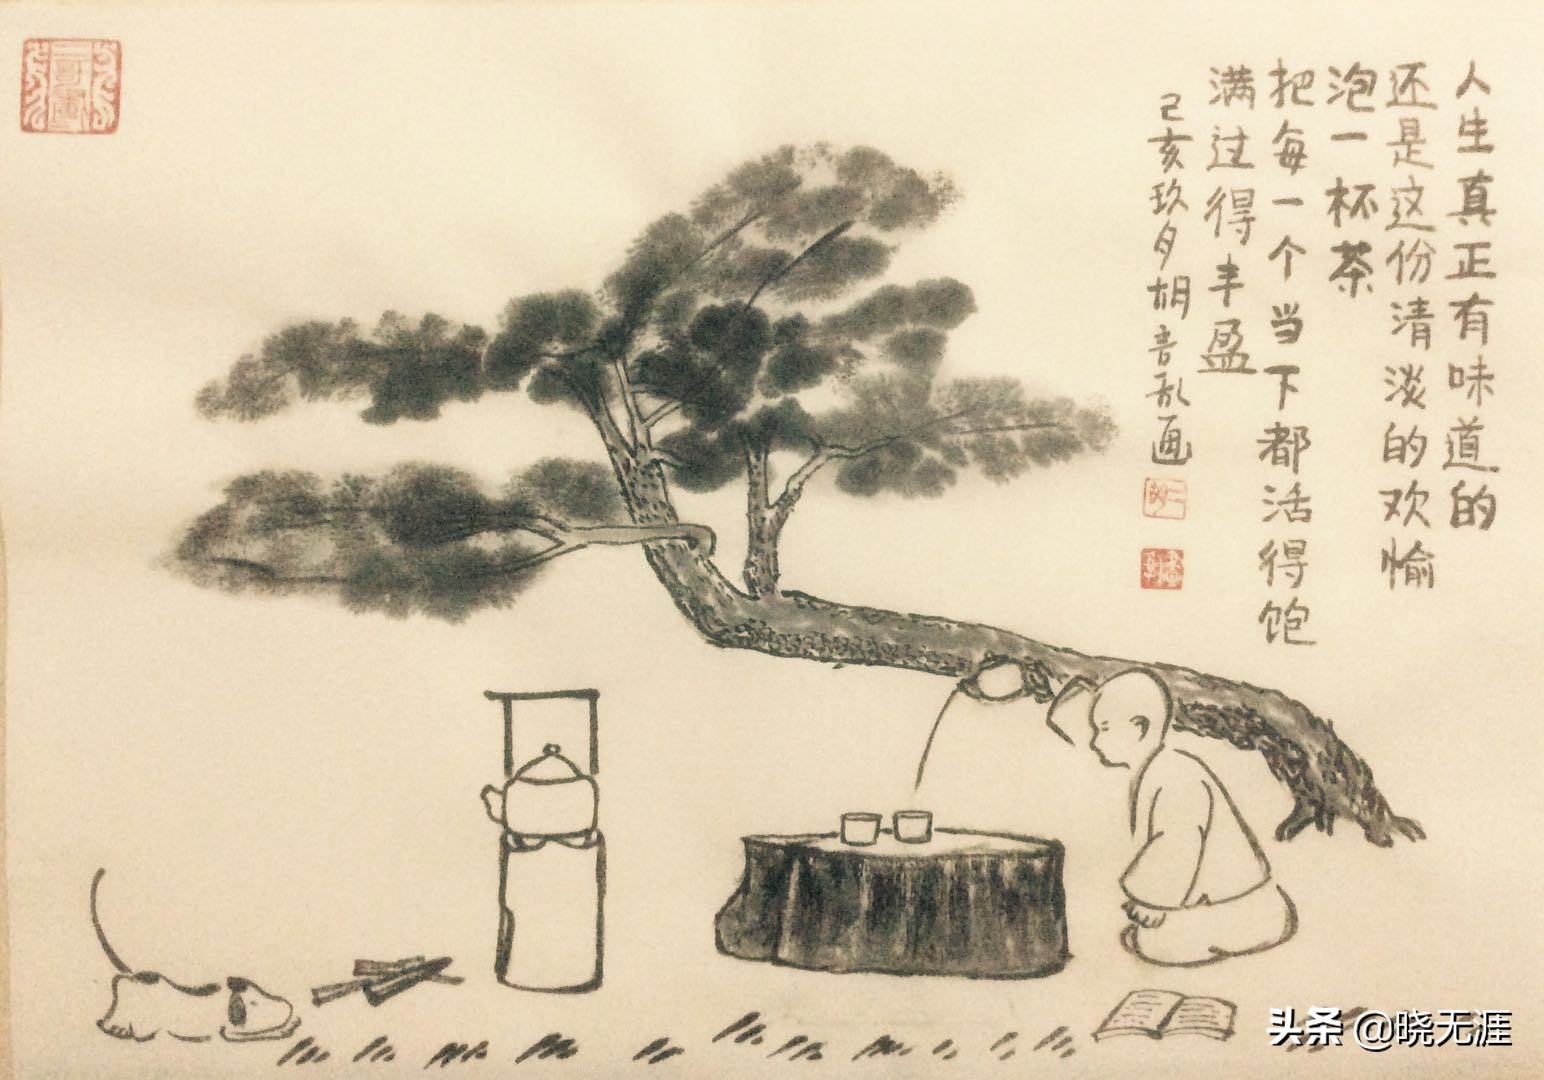 人生真正有味道的
还是这份清淡的欢愉
泡一杯茶
把每一个当下都活得饱
满过得丰盈
己亥玖月胡言乱画
头条 @晓无涯